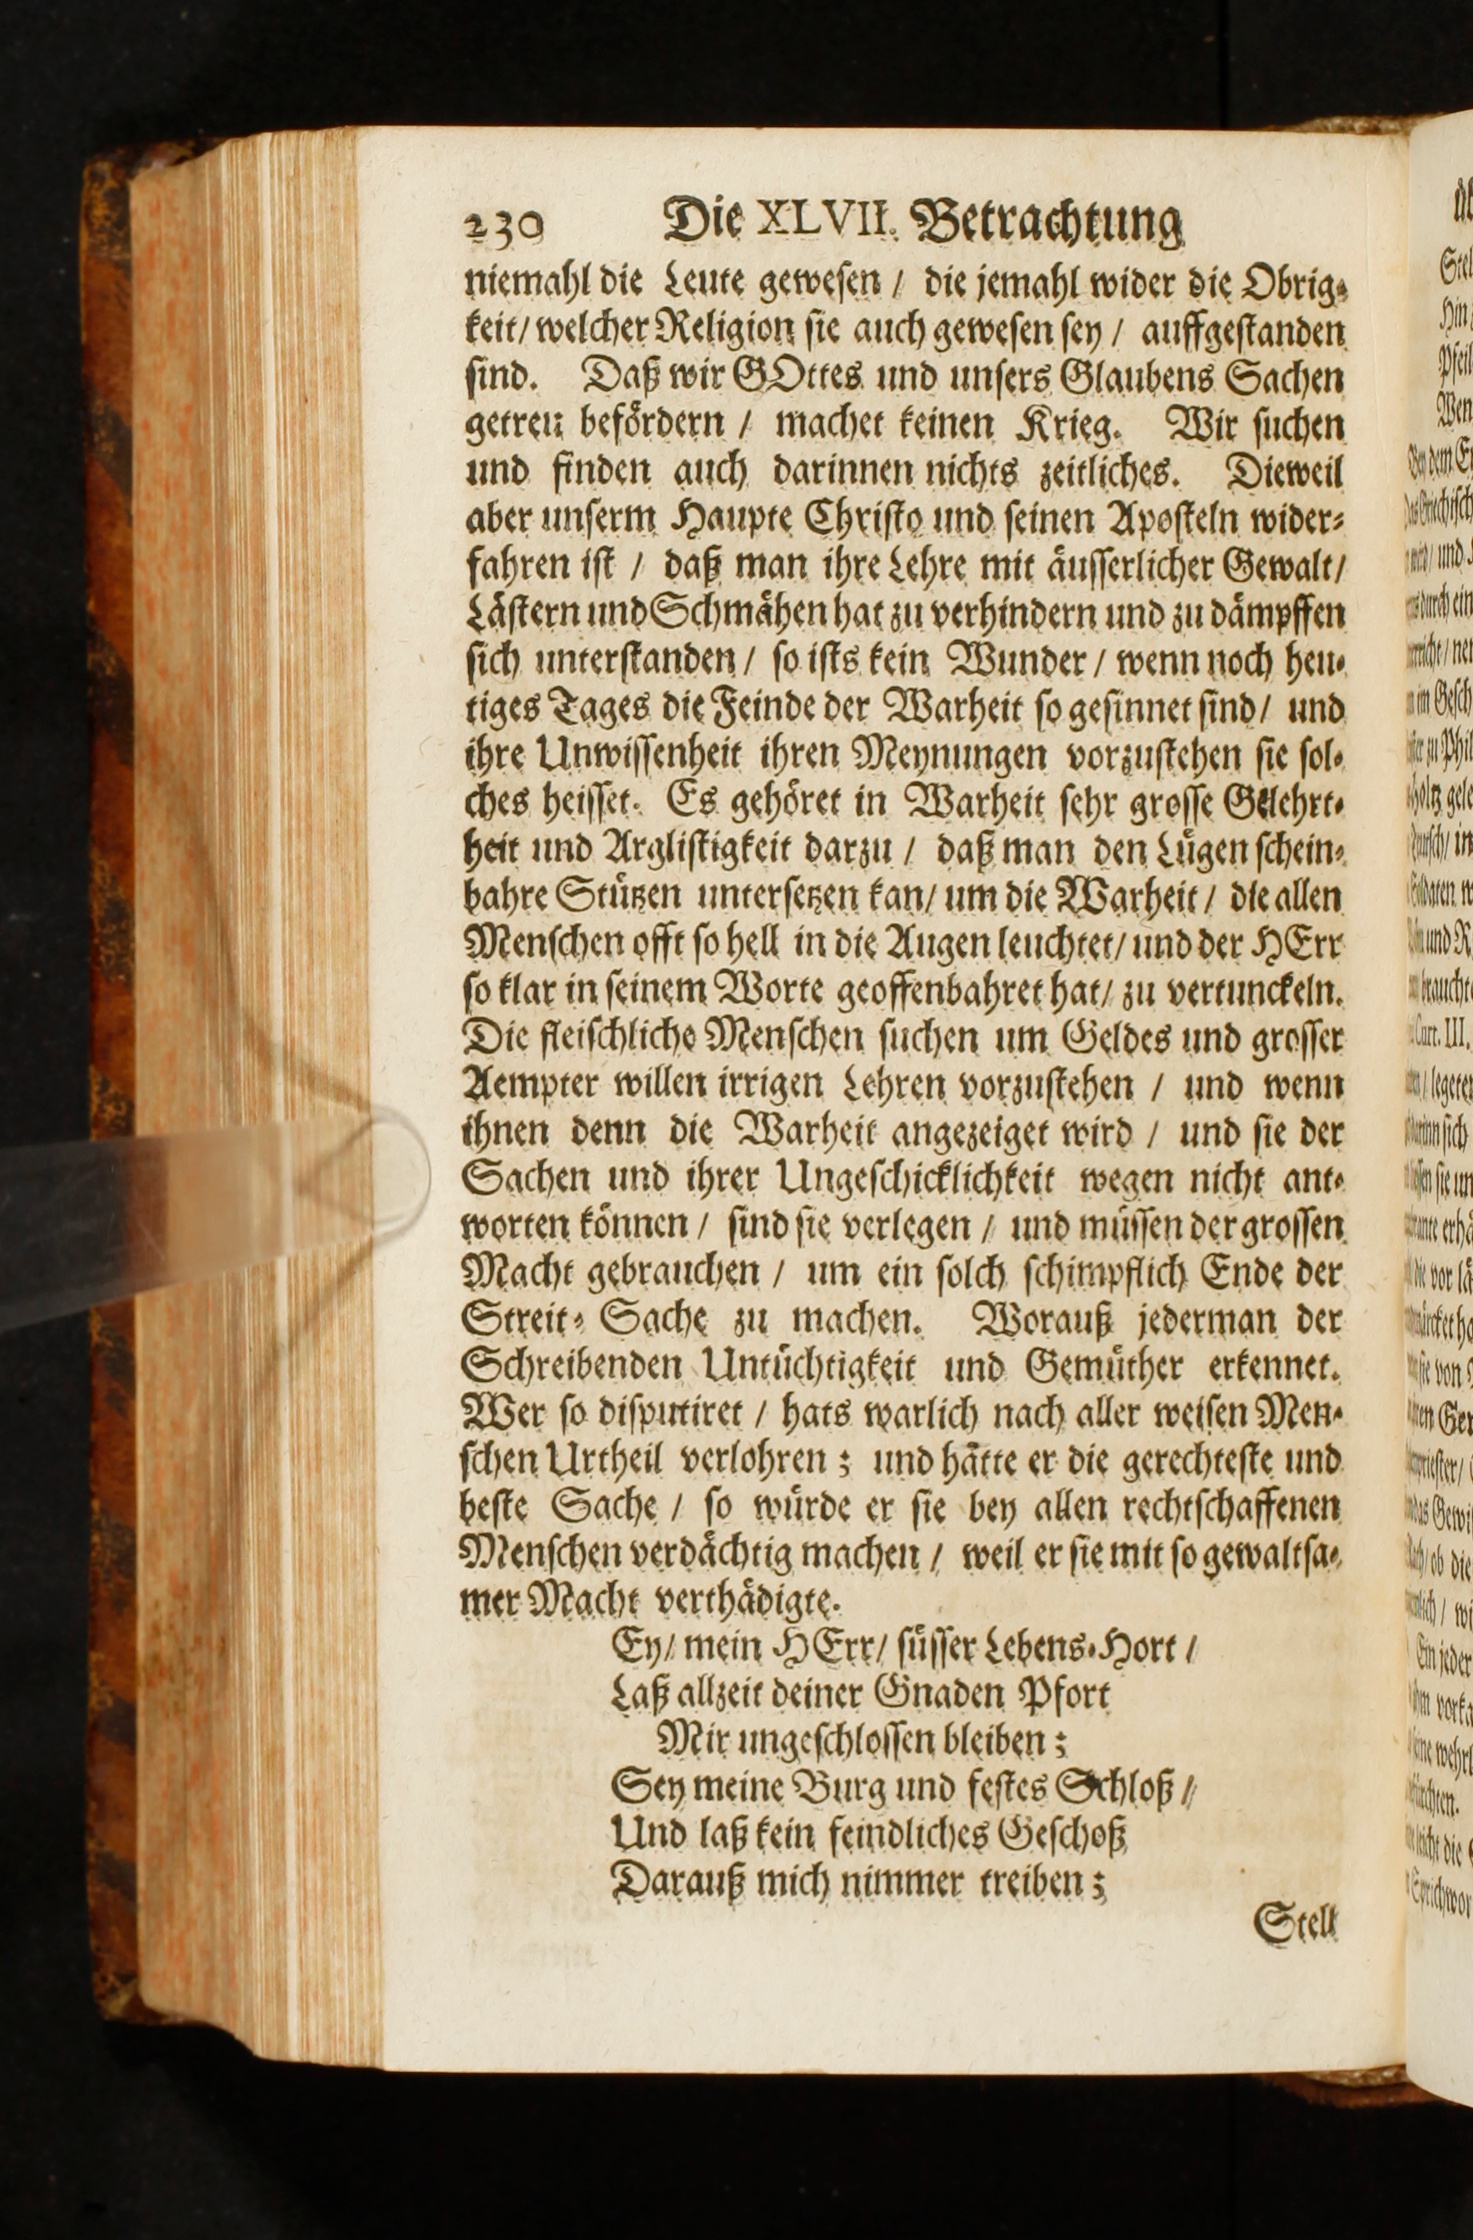 230 Die XLVII. Betrachtung
niemahl die Leute gewesen / die jemahl wider die Obrig-
keit/ welcher Religion sie auch gewesen sey / auffgestanden
sind. Daß wir GOttes und unsers Glaubens Sachen
getreu befördern / machet keinen Krieg. Wir suchen
und finden auch darinnen nichts zeitliches. Dieweil
aber unserm Haupte Christo und seinen Aposteln wider-
fahren ist / daß man ihre Lehre mit äusserlicher Gewalt/
Lästern und Schmähen hat zu verhindern und zu dämpffen
sich unterstanden / so ists kein Wunder / wenn noch heu-
tiges Tages die Feinde der Warheit so gesinnet sind/ und
ihre Unwissenheit ihren Meynungen vorzustehen sie sol-
ches heisset. Es gehöret in Warheit sehr grosse Gelehrt-
heit und Arglistigkeit darzu / daß man den Lügen schein-
bahre Stützen untersetzen kan/ um die Warheit / die allen
Menschen offt so hell in die Augen leuchtet/ und der HErr
so klar in seinem Worte geoffenbahret hat/ zu vertunckeln.
Die fleischliche Menschen suchen um Geldes und grosser
Aempter willen irrigen Lehren vorzustehen / und wenn
ihnen denn die Warheit angezeiget wird / und sie der
Sachen und ihrer Ungeschicklichkeit wegen nicht ant-
worten können / sind sie verlegen / und müssen der grossen
Macht gebrauchen / um ein solch schimpflich Ende der
Streit-Sache zu machen. Worauß jederman der
Schreibenden Untüchtigkeit und Gemüther erkennet.
Wer so disputiret / hats warlich nach aller weisen Men-
schen Urtheil verlohren ; und hätte er die gerechteste und
beste Sache / so würde er sie bey allen rechtschaffenen
Menschen verdächtig machen / weil er sie mit so gewaltsa-
mer Macht verthädigte.
Ey/ mein HErr/ süsser Lebens-Hort /
Laß allzeit deiner Gnaden Pfort
Mir ungeschlossen bleiben ;
Sey meine Burg und festes Schloß /
Und laß kein feindliches Geschoß
Darauß mich nimmer treiben ;
Stell